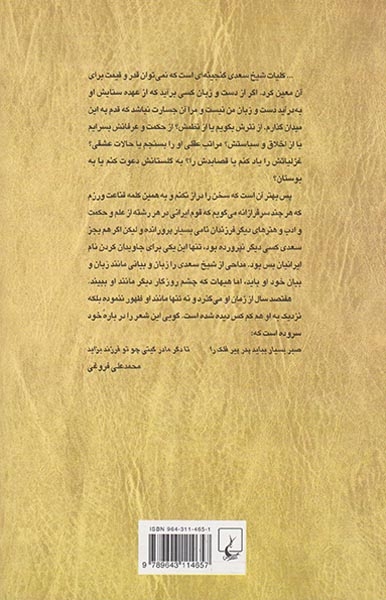 ... کلیات شیخ سعدی گنجینه‌ای است که نمی‌توان قدر و قیمت برای
آن معین کرد. اگر از دست و زبان کسی براید که از عهده ستایش او
به‌درآید دست و زبان من نیست و مرا آن جسارت نباشد که قدم به این
میدان گذارم. از نثرش بگویم یا از نظمش؟ از حکمت و عرفانش بسرایم
یا از اخلاق و سیاستش؟ مراتب عقلی او را بسنجم یا حالات عشقی؟
غزلیاتش را یاد کنم یا قصایدش را؟ به گلستانش دعوت کنم یا به
بوستان؟
پس بهتر آن است که سخن را دراز نکنم و به همین کلمه قناعت ورزم
که هر چند سرفرازانه می‌گویم که قوم ایرانی در هر رشته از علم و حکمت
و ادب و هنرهای دیگر فرزندان نامی بسیار پرورانده و لیکن اگر هم بجز
سعدی کسی دیگر نپرورده بود، تنها این یکی برای جاویدان کردن نام
ایرانیان بس بود. مداحی از شیخ سعدی را زبان و بیانی مانند زبان و
بیان خود او باید، اما هیهات که چشم روزگار دیگر مانند او ببیند.
هفتصد سال از زمان او می‌گذرد و نه تنها مانند او ظهور ننموده بلکه
نزدیک به او هم کم کس دیده شده است. گویی این شعر را در بارهٔ خود
سروده است که:
صبر بسیار بباید پدر پیر فلک را تا دگر مادر گیتی چو تو فرزند بزاید
محمدعلی فروغی
ISBN 964-311-465-1
9 789643 114657